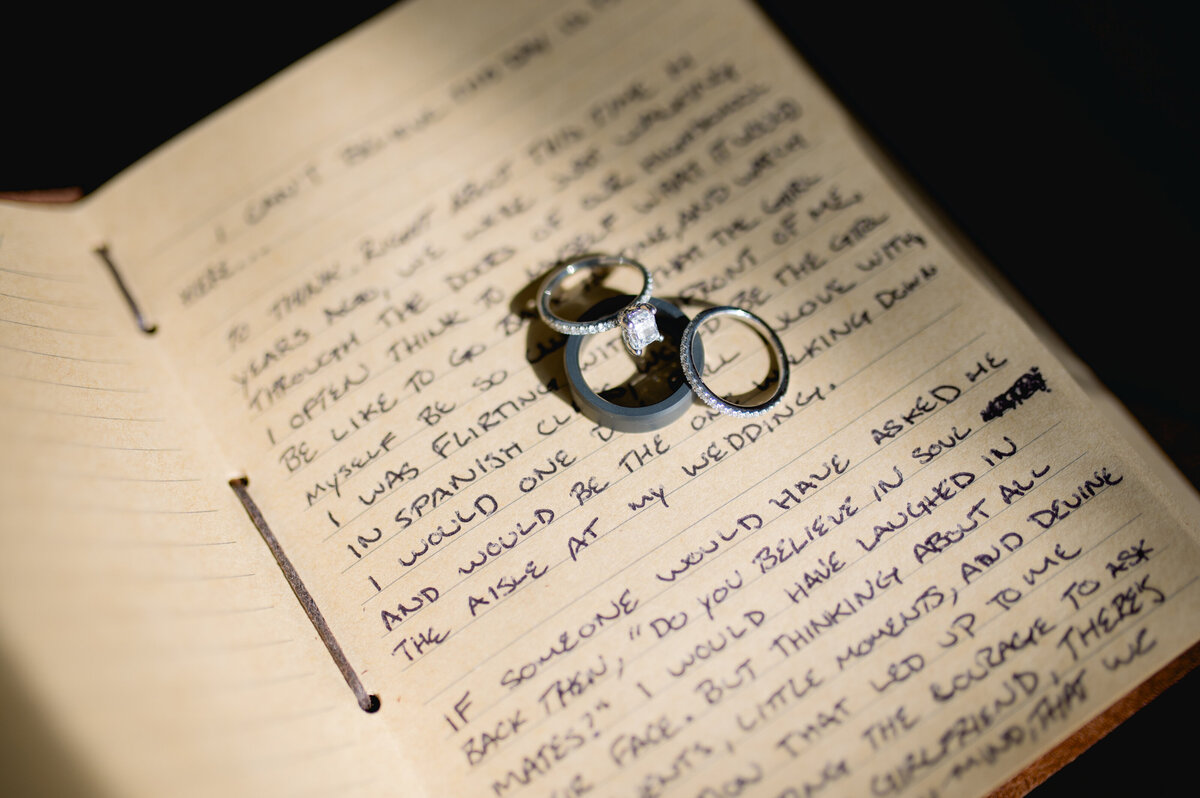 I CAN'T BELIEVE THE DAY IS
HERE...
TO THINK, RIGHT ABOUT THIS TIME
YEARS AGO, WE WERE JUST WALKING
THROUGH THE DOORS OF OUR HIGHSCHOOL
I OFTEN THINK TO MYSELF WHAT IT WOULD
BE LIKE TO GO BACK AND WATCH
MYSELF BE SO THAT THE GIRL
I WAS FLIRTING WITH FRONT OF ME,
IN SPANISH BE THE GIRL
I WOULD ONE LOVE WITH,
AND WOULD BE THE ONE WALKING DOWN
THE AISLE AT MY WEDDING.
IF SOMEONE WOULD HAVE ASKED ME
BACK THEN, "DO YOU BELIEVE IN SOUL
MATES?" I WOULD HAVE LAUGHED IN
FACE. BUT THINKING ABOUT ALL
LITTLE MOMENTS, AND DEVINE
THAT LED UP TO ME
THE COURAGE TO ASK
GIRLFRIEND, THERE'S
MIND, THAT WE